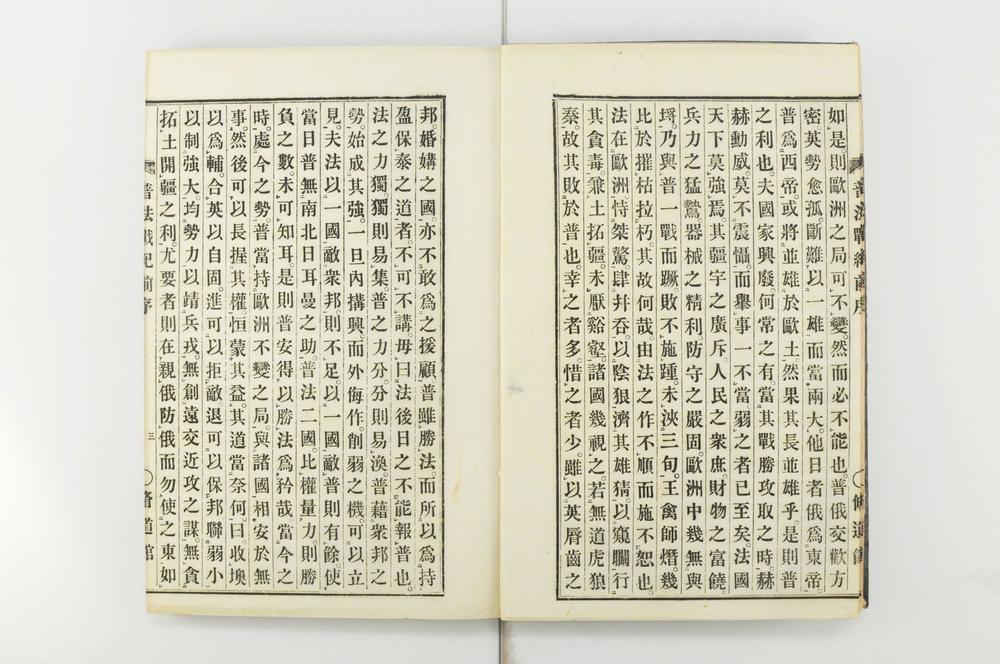 如是。則歐洲之局可不變。然而必不能也。普俄交歡方
密。英勢愈孤。斷難以一雄而當兩大。他日者俄為東帝。
普為西帝。或將並雄於歐土。然果其長並雄乎。是則普
之利也。夫國家興廢。何常之有。當其戰勝攻取之時。赫
赫勳威。莫不震懾。而舉事一不當。弱之者已至矣。法國
天下莫強焉。其疆宇之廣斥。人民之衆庶。財物之富饒。
兵力之猛鷙。器械之精利。防守之嚴固。歐洲中幾無與
埒。乃與普一戰而蹶。敗不施踵。未浹三旬。王禽師熸。幾
比於摧枯拉朽。其故何哉。由法之作不順而施不恕也。
法在歐洲。恃桀驁。肆幷吞。以陰狠濟其雄猜。以窺矙行
其貪毒。兼土拓疆。未厭谿壑。諸國幾視之若無道虎狼
秦。故其敗於普也。幸之者多。惜之者少。雖以英脣齒之
普法戰紀前序
邦。婚媾之國。亦不敢為之援顧。普雖勝法。而所以為持
盈保泰之道者。不可不講。毋曰法後日之不能報普也。
法之力獨。獨則易集。普之力分。分則易渙。普藉衆邦之
勢。始成其強。一旦內搆興而外侮作。削弱之機。可以立
見。夫法以一國敵衆邦則不足。以一國敵普則有餘。使
當日普無南北日耳曼之助。普法二國。比權量力。則勝
負之數。未可知耳。是則普安得以勝法為矜哉。當今之
時。處今之勢。普當持歐洲不變之局。與諸國相安於無
事。然後可以長握其權。恒蒙其益。其道當奈何。曰收墺
以為輔。合英以自固。進可以拒敵。退可以保邦。聯弱小
以制強大。均勢力以靖兵戎。無創遠交近攻之謀。無貪
拓土開疆之利。尤要者則在親俄防俄。而勿使之東。如
普法戰紀前序
三
脩道館